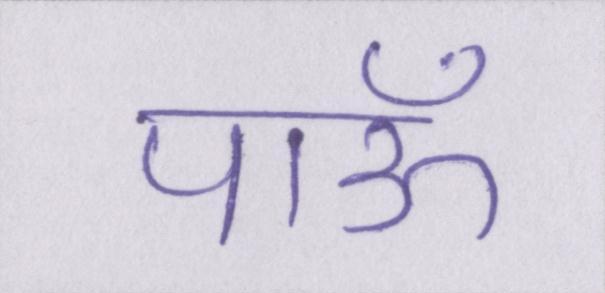 पाऊँ